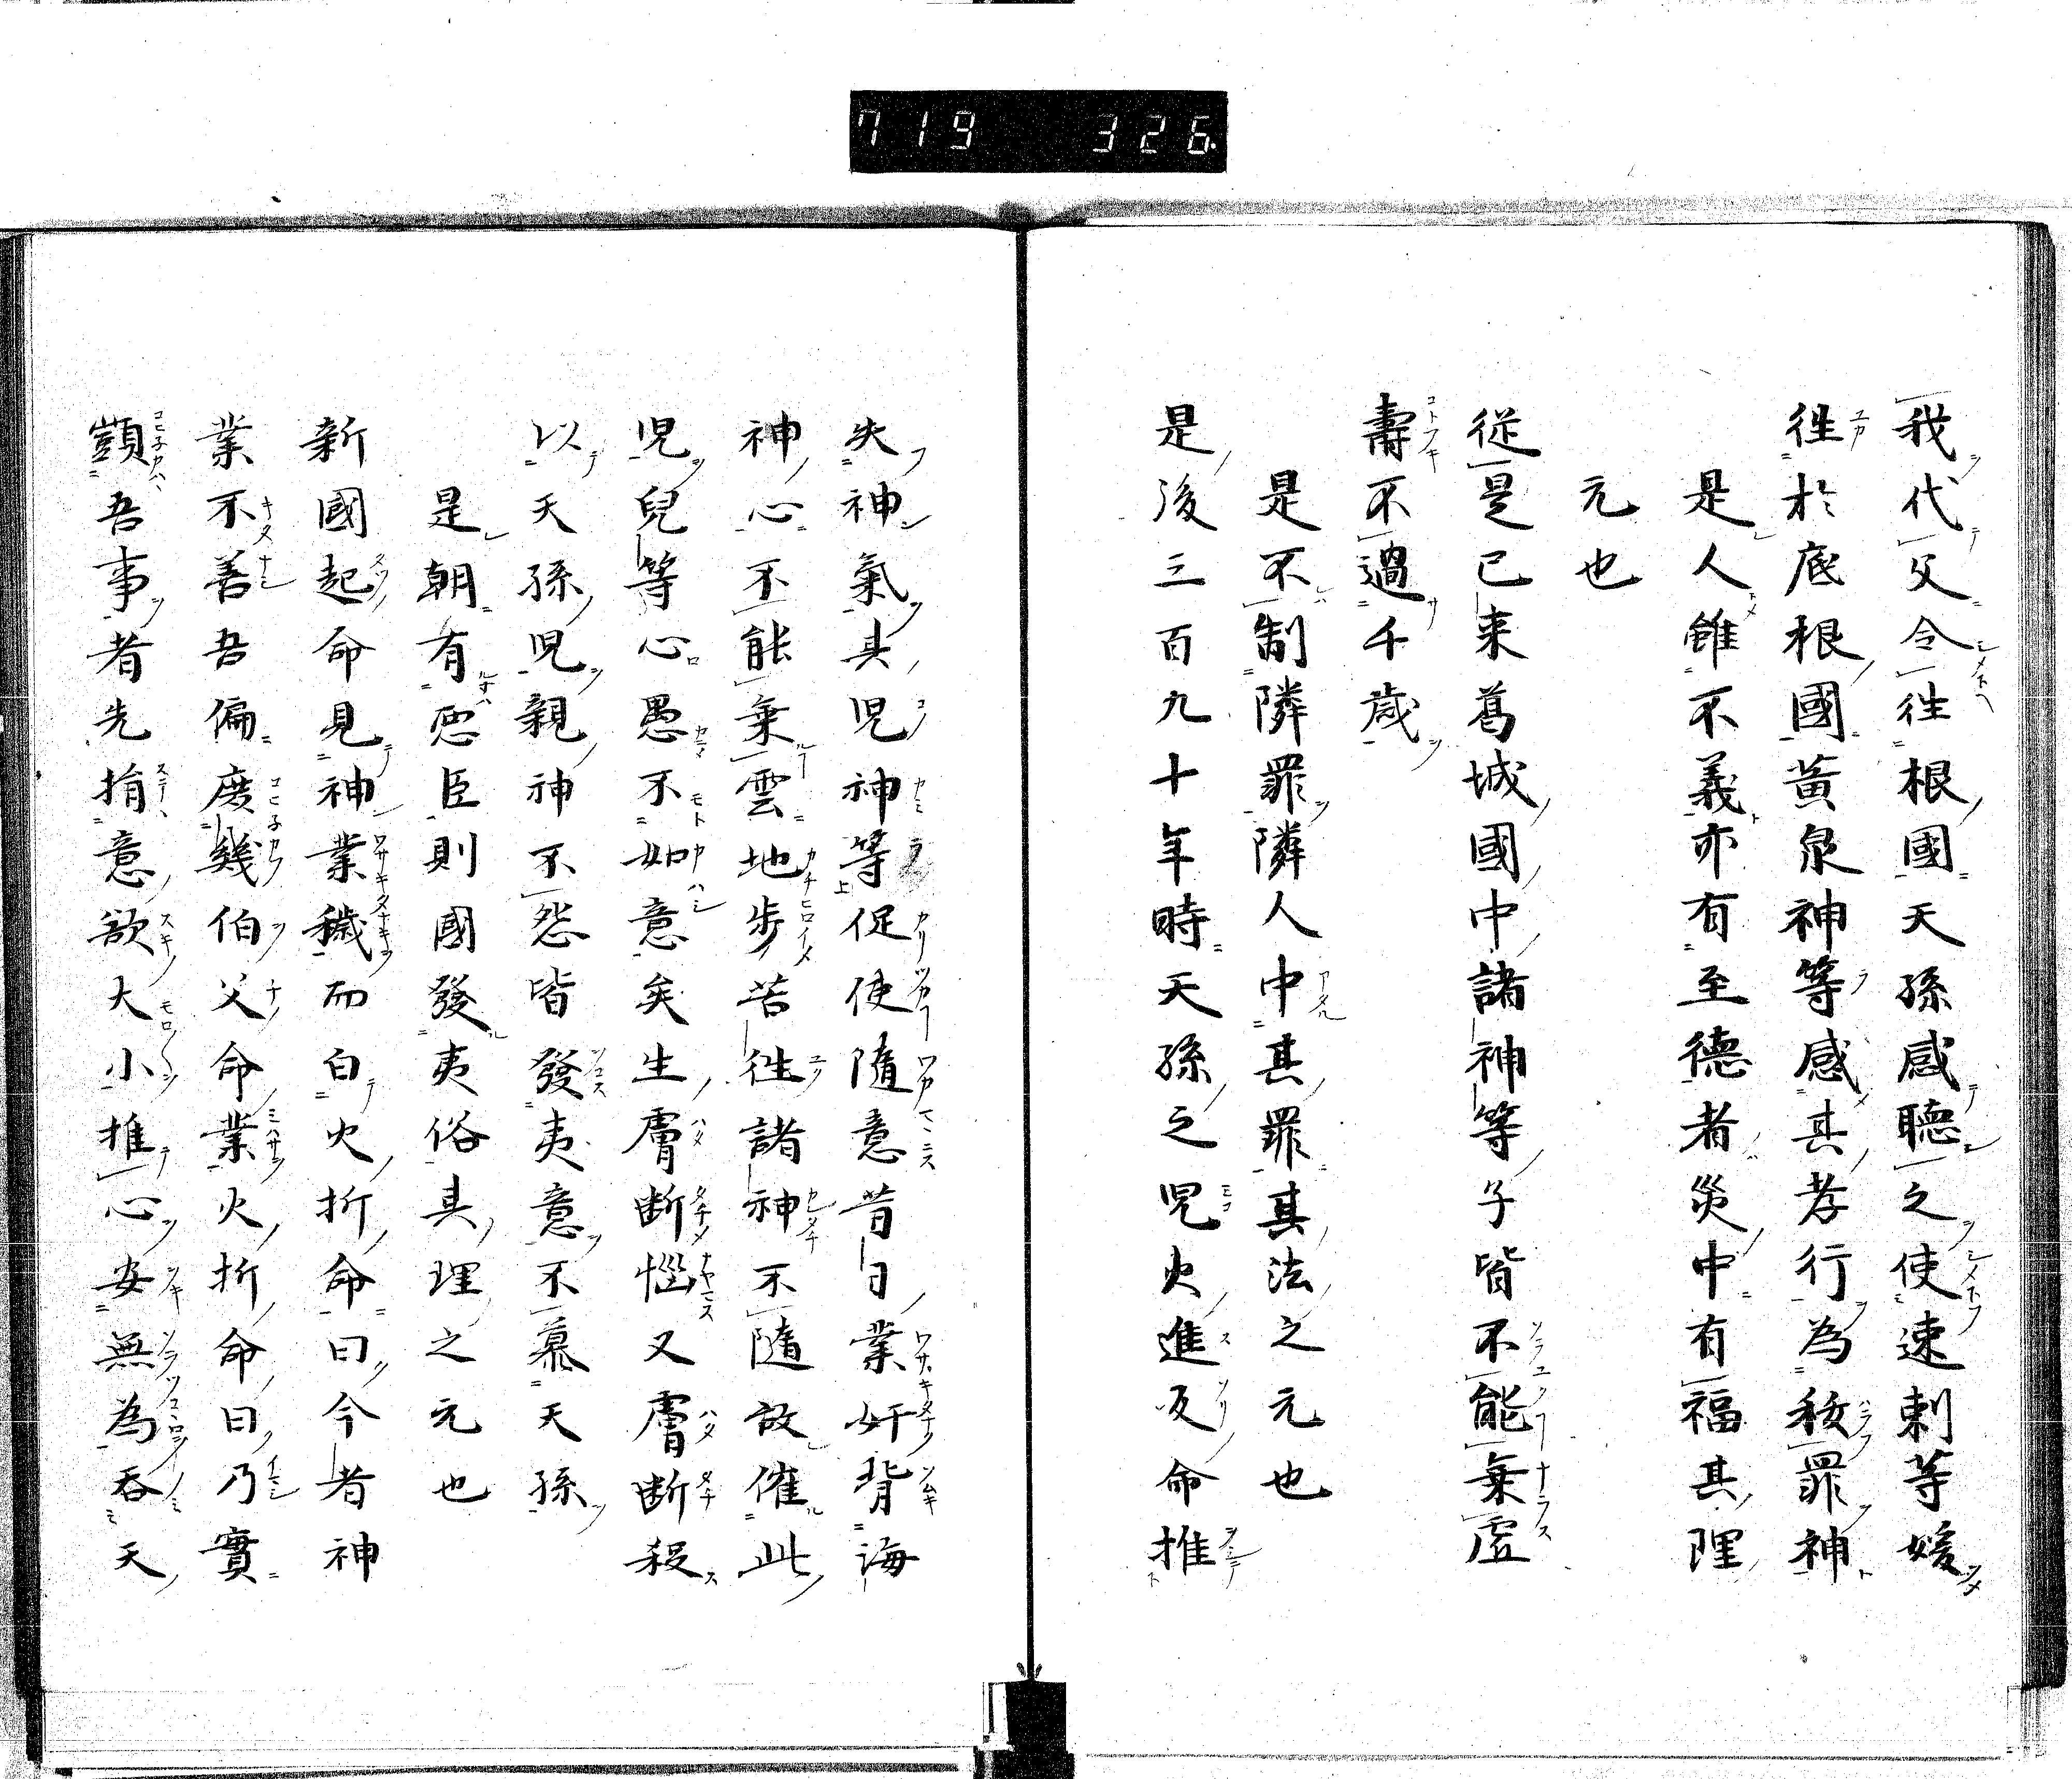 719 326
我代父令往根國天孫感聽之使速刺等媛
往於底根國黃泉神等感其孝行為秡罪神
是人雖不義亦有至德者災中有福其理
元也
從是已来葛城國中諸神等子皆不能乗虛
壽不過千歲
是不制隣罪隣人中其罪其法之元也
是後三百九十年時天孫之児火進反命推
失神氣具児神等促使隨意昔日業奸背海
神心不能乗雲地步苦往諸神不隨故催此
児兒等心愚不如意矣生膚断惱又膚断殺
以天孫児親神不怨皆發夷意不慕天孫
是朝有惡臣則國發夷俗具理之元也
新國起命見神業穢而白火折命曰今者神
業不善吾偏庻幾伯父命業火折命曰乃實
顗吾事者先捐意欲大小推心安無為吞天